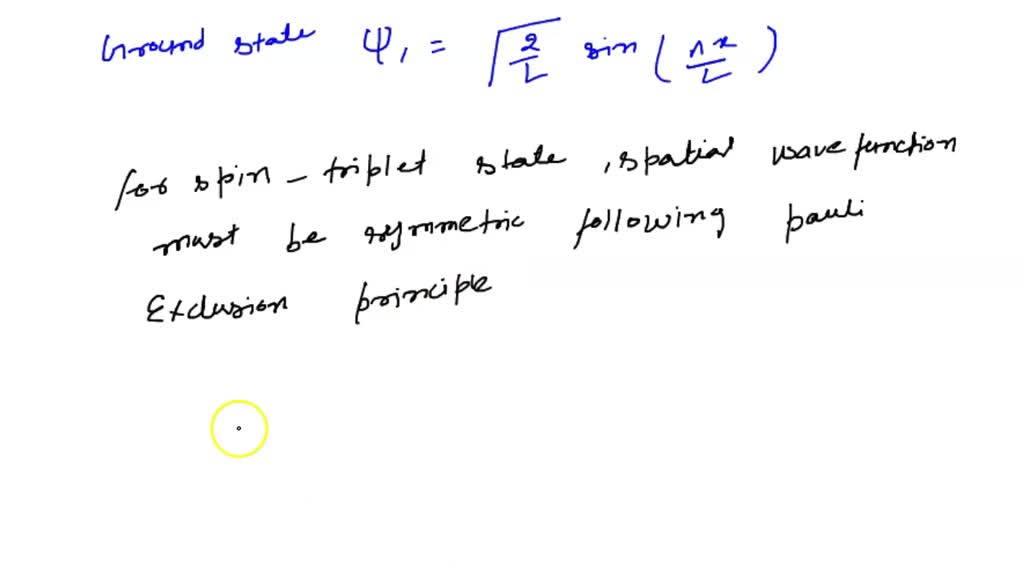 Ground state ψ₁ = √2/L sin (πx/L)
for spin - triplet state , spatial wave function
must be symmetric following pauli
Exclusion principle